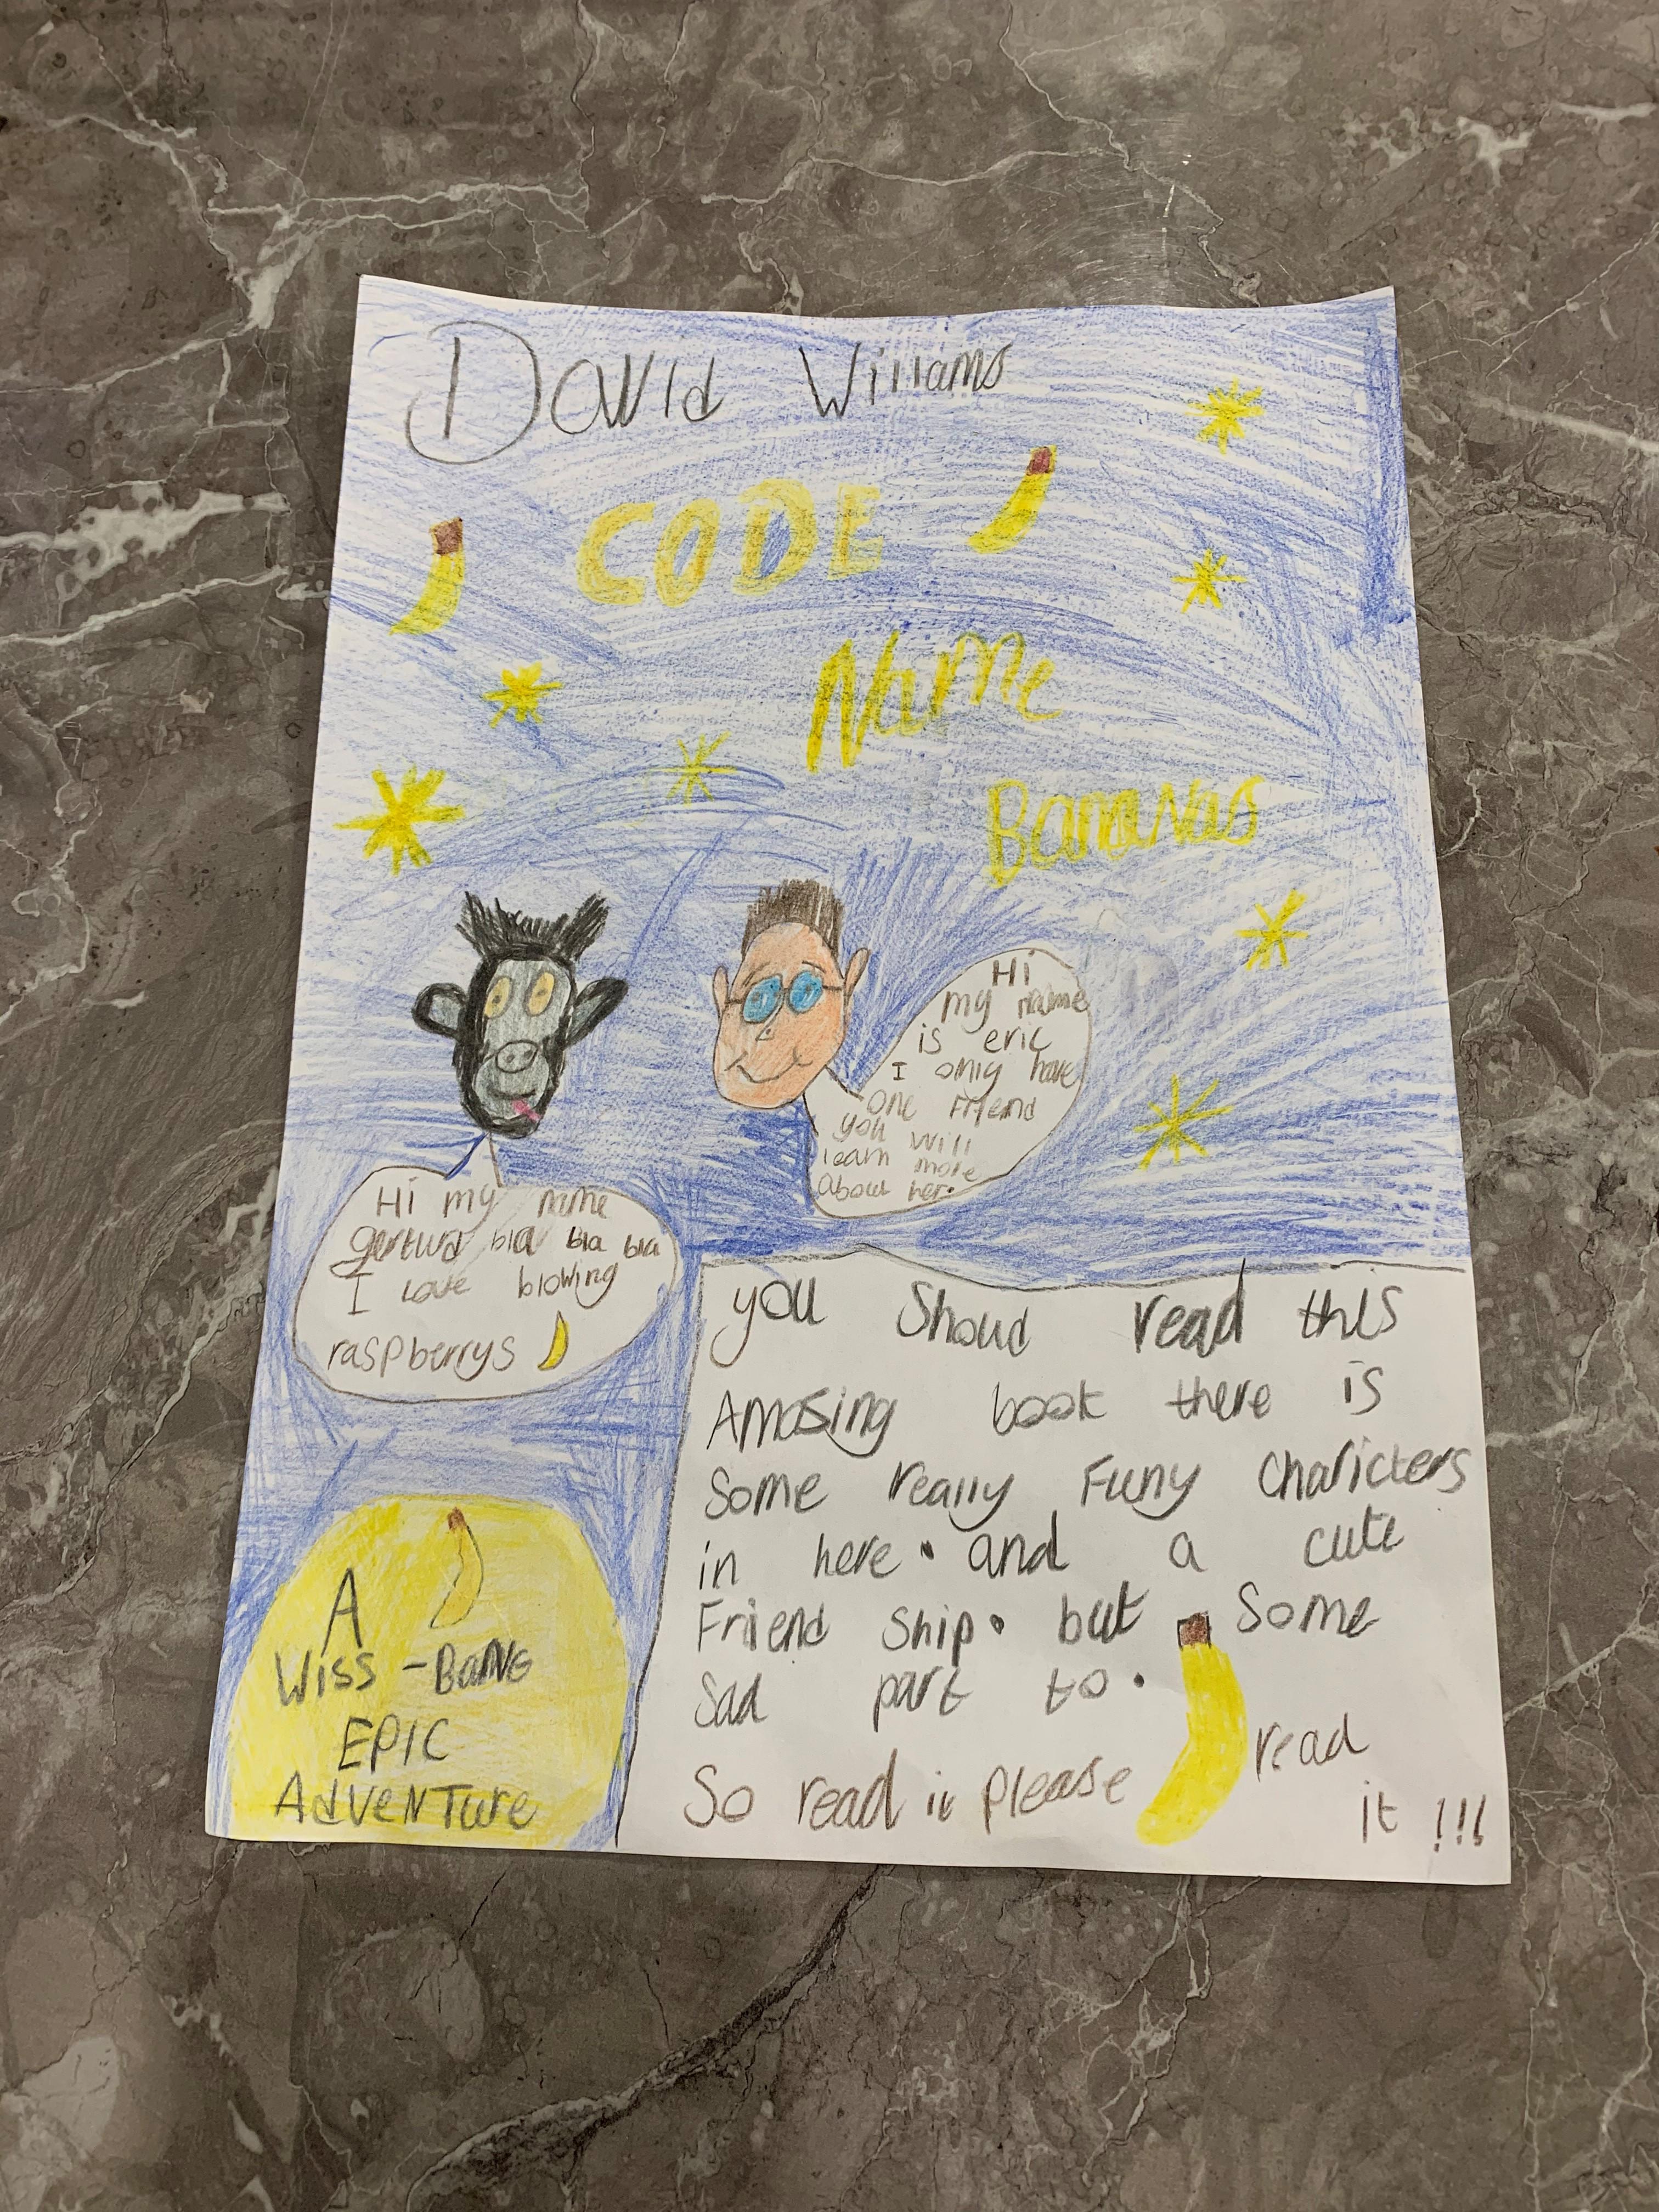 David Williams
CODE
Name
Bananas
Hi
my name
is eric
I only have
one Friend
you will
learn more
about her.
Hi my name
gerturd bla bla bla
I love blowing
raspberrys
you Shoud read this
Amasing book there is
Some really Funny Charicters
in here. and a cute
Friend Ship. but Some
Sad part to.
So read it please read
it !!!
A
Wiss-BANG
EPIC
AdveNTure